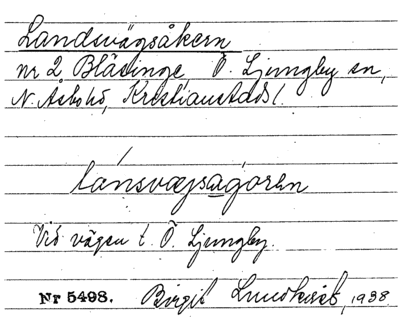 Landsvägsåkern
nr 2 Bläsinge, Ö. Ljungby sn,
N. Åsbo hd, Kristianstads l.
lánsvægsagoren
Vid vägen t. Ö. Ljungby.
Nr 5498. Birgit 1938